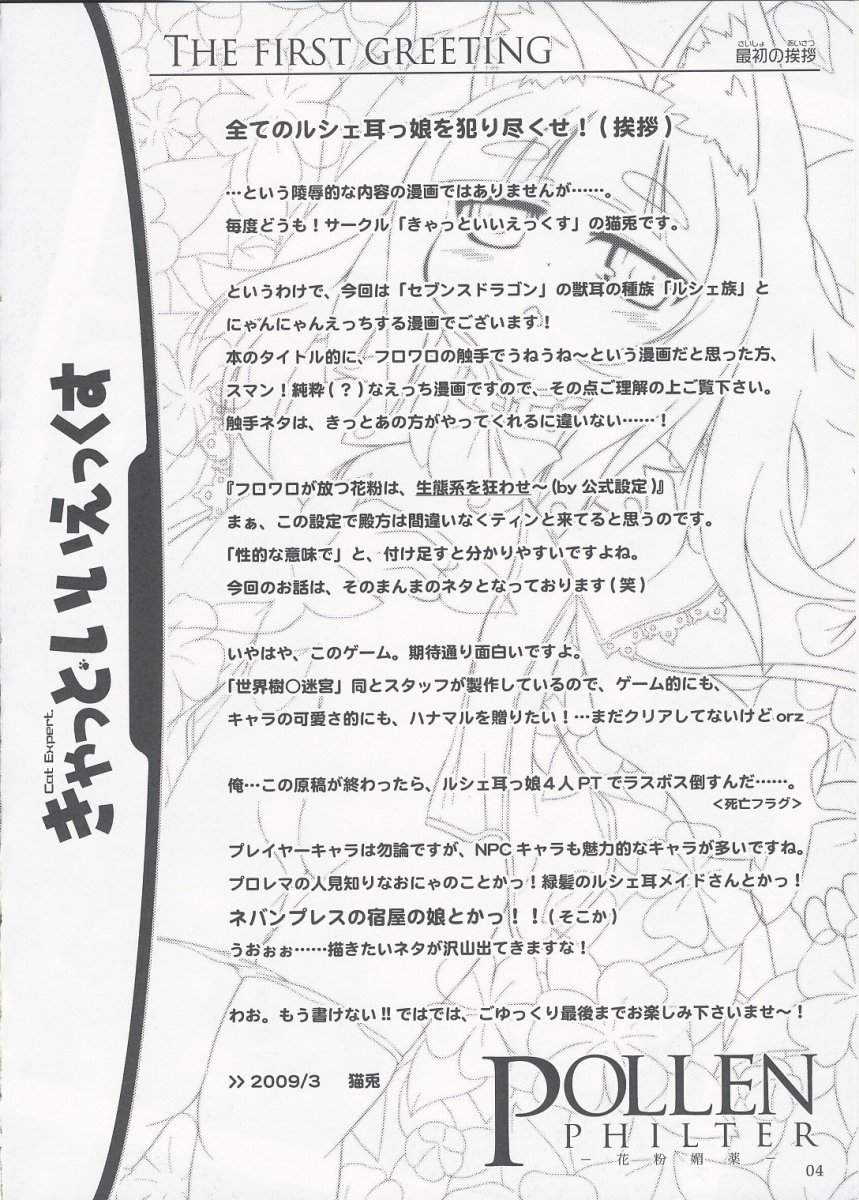 THE FIRST GREETING
さいしょ あいさつ
最初の挨拶
全てのルシェ耳っ娘を犯り尽くせ！(挨拶)
…という陵辱的な内容の漫画ではありませんが……。
毎度どうも！サークル「きゃっといいえっくす」の猫兎です。
というわけで、今回は「セブンスドラゴン」の獣耳の種族「ルシェ族」と
にゃんにゃんえっちする漫画でございます！
本のタイトル的に、フロワロの触手でうねうね～という漫画だと思った方、
スマン！純粋(？)なえっち漫画ですので、その点ご理解の上ご覧下さい。
触手ネタは、きっとあの方がやってくれるに違いない……！
『フロワロが放つ花粉は、生態系を狂わせ～(by 公式設定)』
まぁ、この設定で殿方は間違いなくティンと来てると思うのです。
「性的な意味で」と、付け足すと分かりやすいですよね。
今回のお話は、そのまんまのネタとなっております(笑)
いやはや、このゲーム。期待通り面白いですよ。
「世界樹○迷宮」同とスタッフが製作しているので、ゲーム的にも、
キャラの可愛さ的にも、ハナマルを贈りたい！…まだクリアしてないけどorz
俺…この原稿が終わったら、ルシェ耳っ娘4人PTでラスボス倒すんだ……。
＜死亡フラグ＞
プレイヤーキャラは勿論ですが、NPCキャラも魅力的なキャラが多いですね。
プロレマの人見知りなおにゃのことかっ！緑髪のルシェ耳メイドさんとかっ！
ネバンプレスの宿屋の娘とかっ！！(そこか)
うおぉぉ……描きたいネタが沢山出てきますな！
わお。もう書けない!!ではでは、ごゆっくり最後までお楽しみ下さいませ～！
>> 2009/3 猫兎
きゃっといいえっくす
Cat Expert.
POLLEN
PHILTER
－花粉媚薬－
04